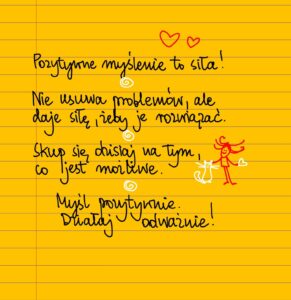 Pozytywne myślenie to siła!
Nie usuwa problemów, ale
daje siłę, żeby je rozwiązać.
Skup się dzisiaj na tym,
co jest możliwe.
Myśl pozytywnie.
Działaj odważnie!